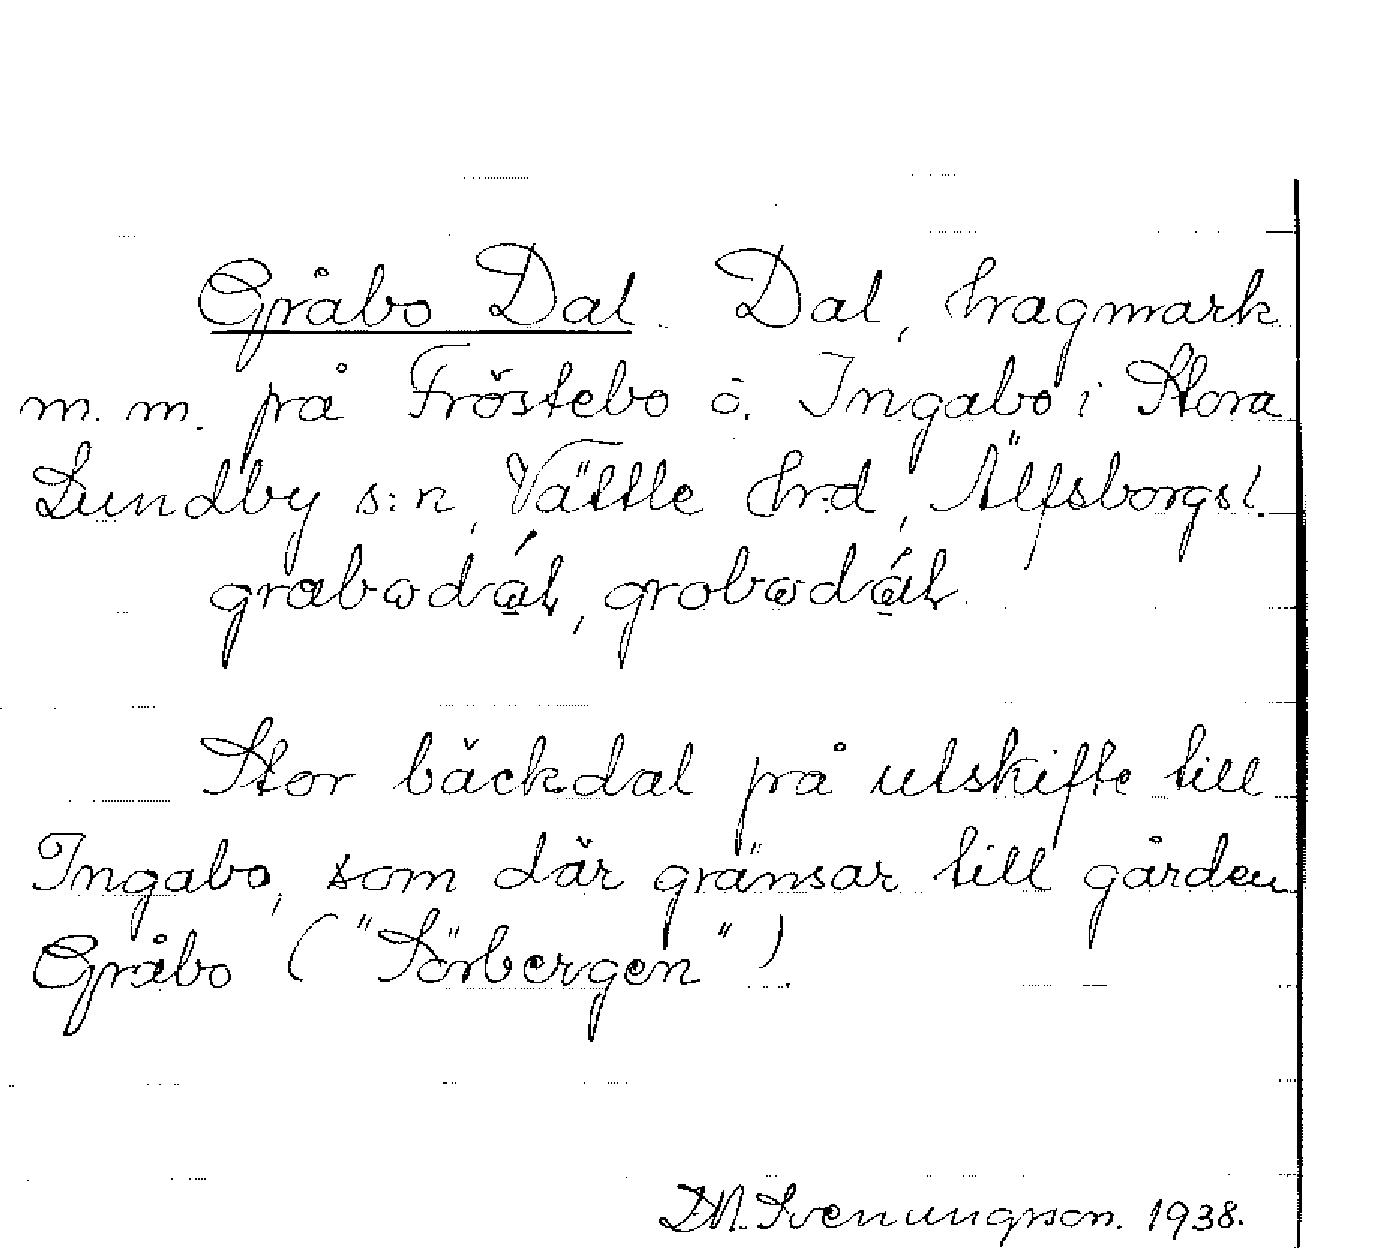 Gråbo Dal. Dal, hagmark
m. m. på Fröstebo o. Ingabo i Stora
Lundby s:n, Vättle hrd, Älfsborgs l.
Stor bäckdal på utskifte till
Ingabo, som där gränsar till gården
Gråbo ("Sörbergen")
D.N. Svenungson. 1938.